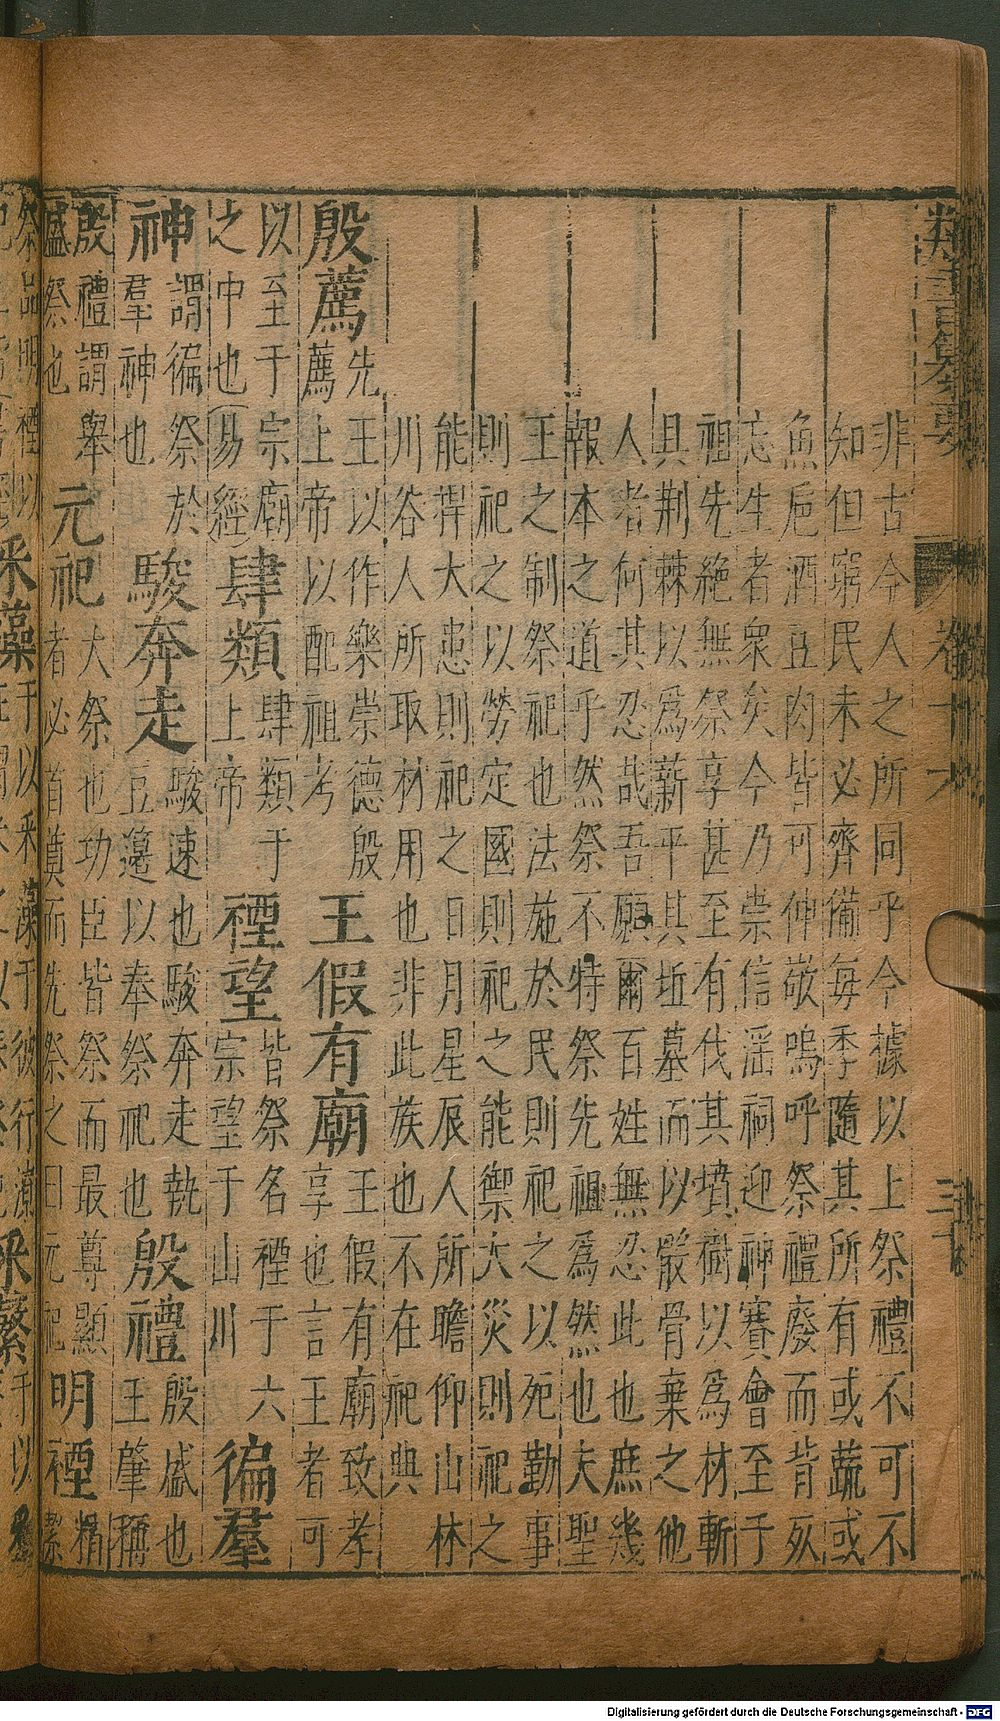 類書纂要
卷十六
三十
非古今人之所同乎今據以上祭禮不可不
知但窮民未必齊備每季隨其所有或蔬或
魚卮酒豆肉皆可伸敬嗚呼祭禮廢而背死
忘生者衆矣今乃崇信淫祠迎神賽會至于
祖先絶無祭享甚至有伐其墳樹以爲材斬
其荆棘以爲薪平其坵墓而以骸骨棄之他
人者何其忍哉吾願爾百姓無忍此也庶幾
報本之道乎然祭不特祭先祖爲然也夫聖
王之制祭祀也法施於民則祀之以死勤事
則祀之以勞定國則祀之能禦大災則祀之
能捍大患則祀之日月星辰人所瞻仰山林
川谷人所取材用也非此族也不在祀典
殷薦先王以作樂崇德殷薦上帝以配祖考王假有廟王假有廟致孝享也言王者可
以至于宗廟之中也易經肆類肆類于上帝禋望皆祭名禋于六宗望于山川徧羣
神謂徧祭於羣神也駿奔走駿速也駿奔走執豆籩以奉祭祀也殷禮殷盛也王肇稱
殷禮謂舉盛祭也元祀大祭也功臣皆祭而最尊顯者必首奠而先祭之曰元祀明禋精潔
Digitalisierung gefördert durch die Deutsche Forschungsgemeinschaft - DFG